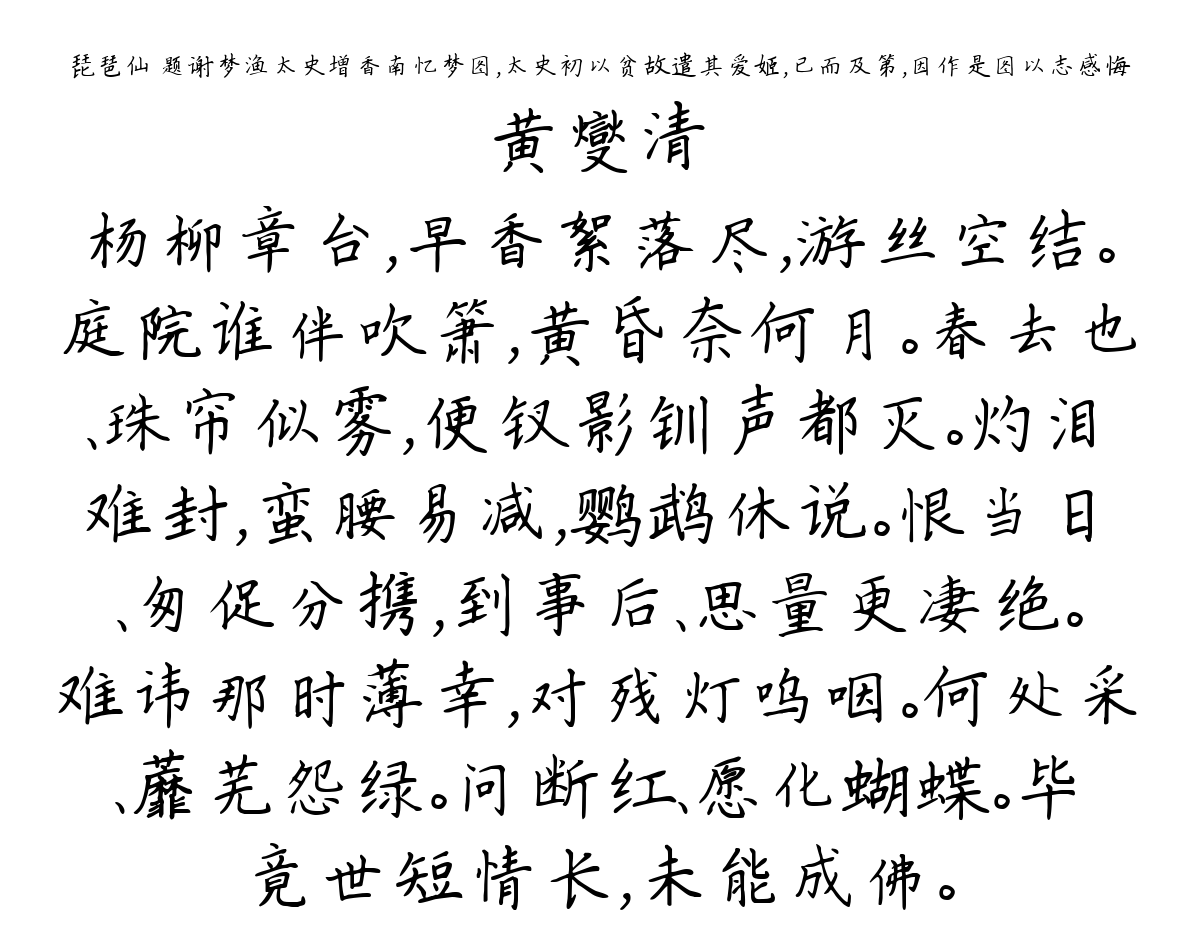 琵琶仙 题谢梦渔太史增香南忆梦图,太史初以贫故遣其爱姬,已而及第,因作是图以志感悔
黄燮清
杨柳章台,早香絮落尽,游丝空结。
庭院谁伴吹箫,黄昏奈何月。春去也
、珠帘似雾,便钗影钏声都灭。灼泪
难封,蛮腰易减,鹦鹉休说。恨当日
、匆促分携,到事后、思量更凄绝。
难讳那时薄幸,对残灯呜咽。何处采
、蘼芜怨绿。问断红、愿化蝴蝶。毕
竟世短情长,未能成佛。